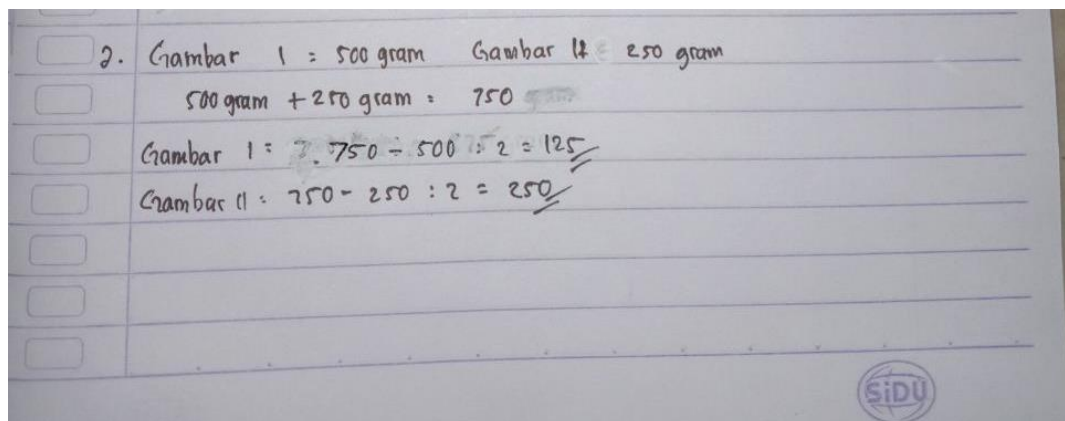 2. Gambar I = 500 gram Gambar II = 250 gram
500 gram + 250 gram = 750
Gambar I = 750 - 500 : 2 = 125
Gambar II = 750 - 250 : 2 = 250
SiDU